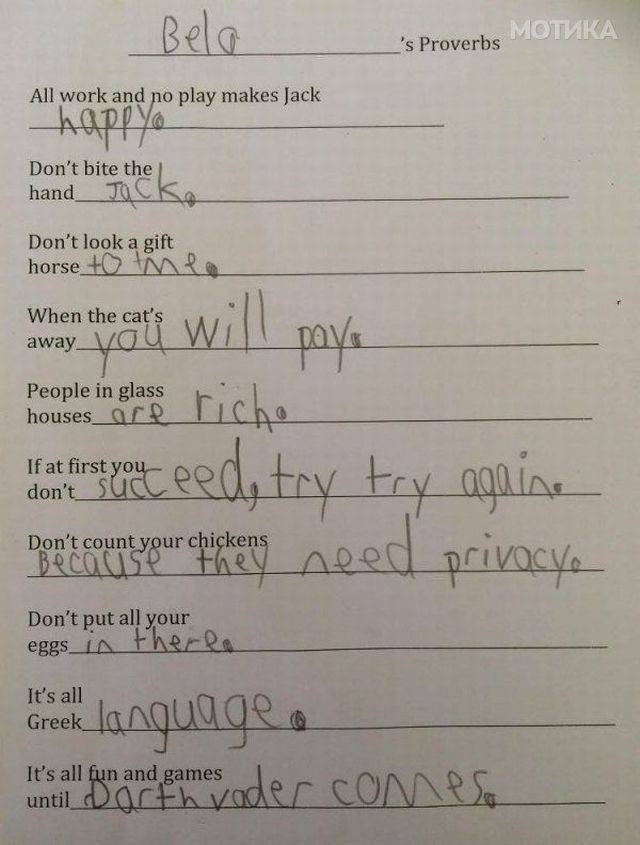 МОТИКА
Bela 's Proverbs
All work and no play makes Jack
happy.
Don't bite the
hand Jack.
Don't look a gift
horse to me.
When the cat's
away you will pay.
People in glass
houses are rich.
If at first you
don't succeed, try try again.
Don't count your chickens
Because they need privacy.
Don't put all your
eggs in there.
It's all
Greek language.
It's all fun and games
until Darth vader comes.